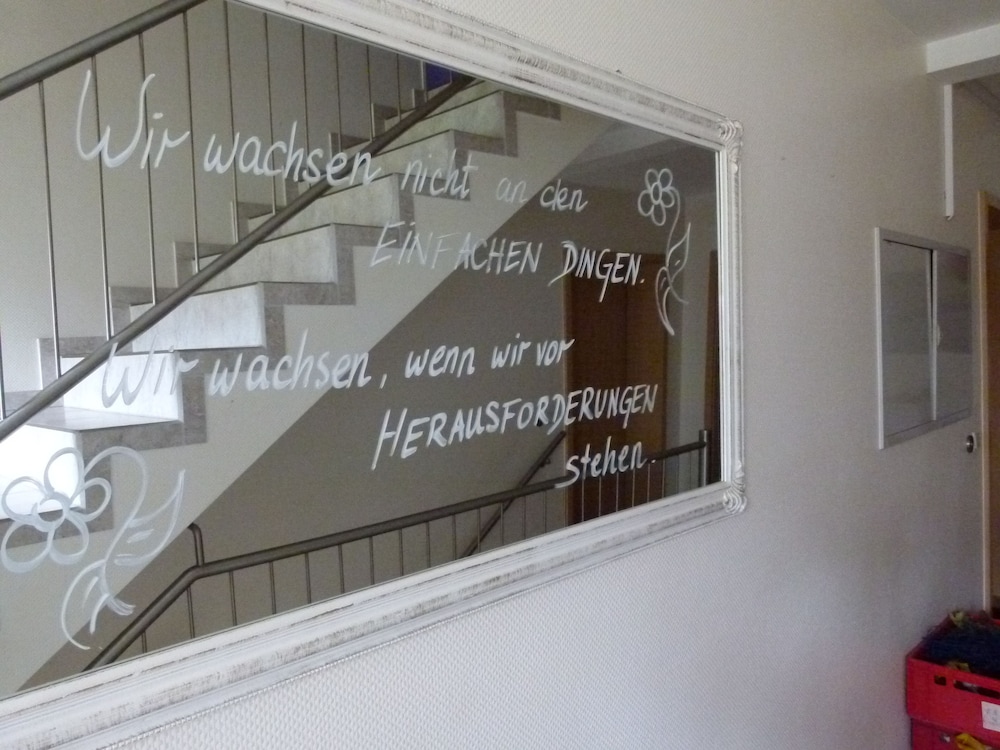 Wir wachsen nicht an den
EINFACHEN DINGEN.
Wir wachsen, wenn wir vor
HERAUSFORDERUNGEN
stehen.